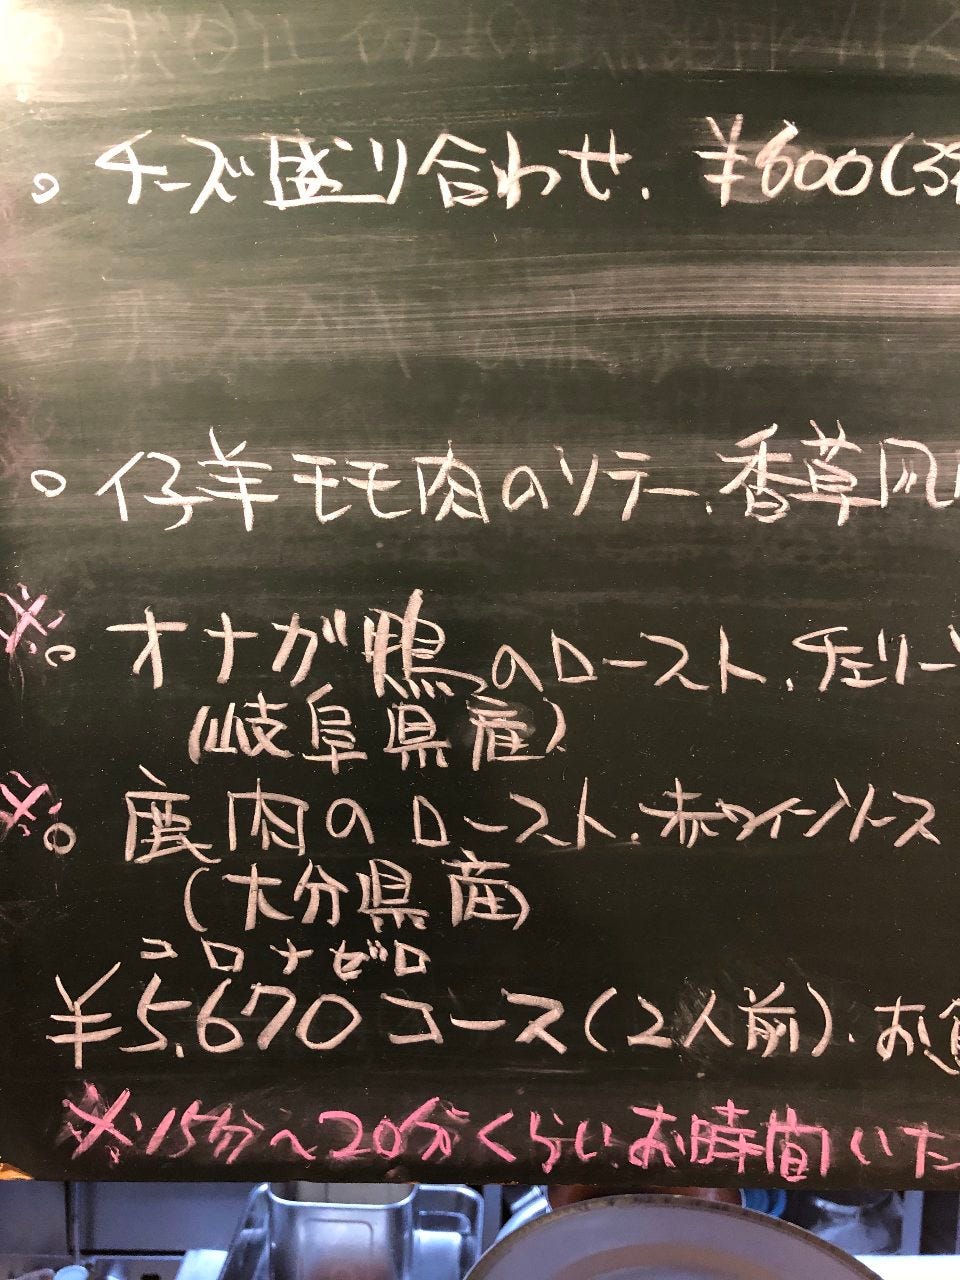 。チーズ盛り合わせ. ¥600(3
。仔羊モモ肉のソテー.香草風
※。オナガ鴨のロースト.チェリー
(岐阜県産)
※。鹿肉のロースト.赤ワインソース
(大分県産)
コロナゼロ
¥5,670コース(2人前).お
※.15分~20分くらいお時間いた